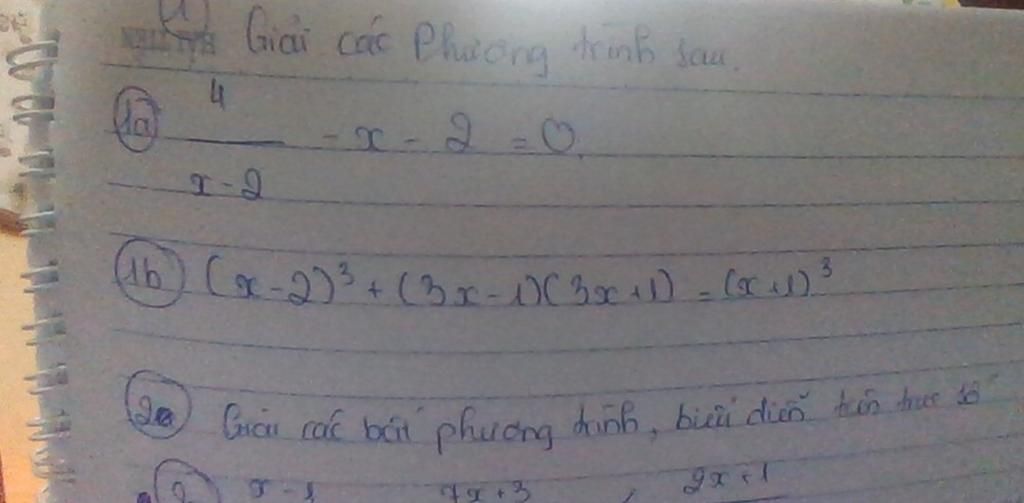 1
Giải các phương trình sau.
1a 4/(x-2) - x - 2 = 0
1b (x-2)³ + (3x-1)(3x+1) = (x+1)³
2a Giải các bất phương trình, biểu diễn trên trục số
x-1 7x+3 2x+1